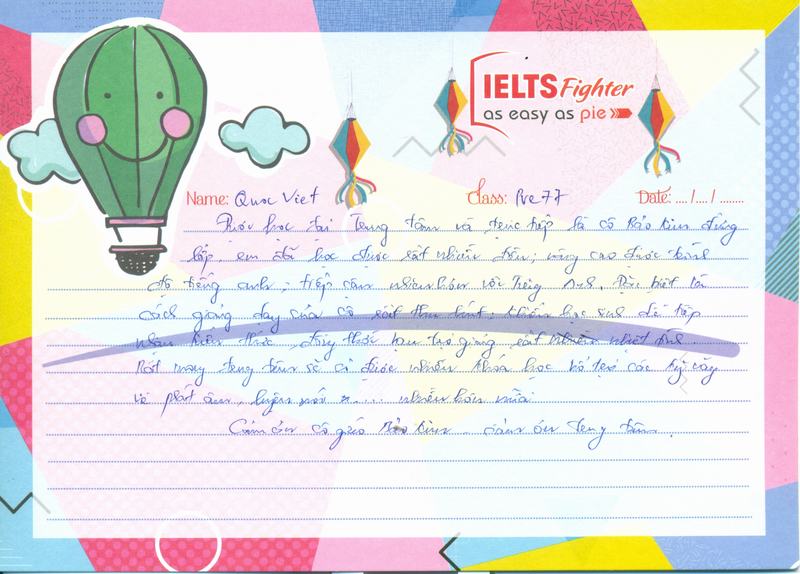 IELTS Fighter
as easy as pie
Name: Quoc Viet Class: Pre 77 Date: .... /.... / ........
học tại Trung tâm và trực tiếp là cô Bảo Kim đứng
lớp em đã học được rất nhiều điều; nâng cao được trình
độ tiếng anh; tiếp cận nhiều hơn với Tiếng Anh. Đặc biệt là
cách giảng dạy của cô rất thu hút; khiến học sinh dễ tiếp
nhận kiến thức, đồng thời giảng rất nhiều nhiệt tình.
Rất mong trung tâm sẽ có được nhiều khoá học hỗ trợ các kỹ năng
về phát âm, luyện nói ..... nhiều hơn nữa.
Cảm ơn cô giáo Bảo Kim. cảm ơn Trung tâm.